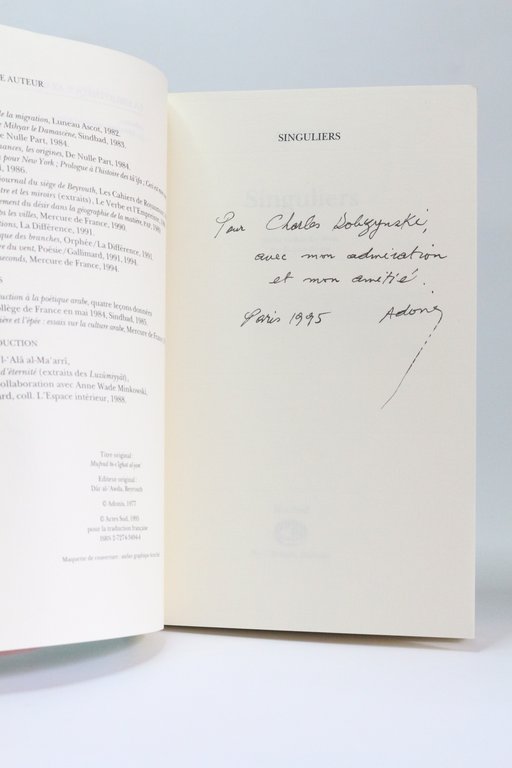 E AUTEUR
de la migration, Luneau Ascot, 1982.
Mihyar le Damascène, Sindbad, 1983.
De Nulle Part, 1984.
les origines, De Nulle Part, 1984.
pour New York ; Prologue à l'histoire des
1986.
journal du siège de Beyrouth, Les Cahiers de
et les miroirs (extraits), Le Verbe et l'Empreinte
du désir dans la géographie de la matière,
les villes, Mercure de France, 1990.
La Différence, 1991.
que des branches, Orphée/La Différence, 1991.
du vent, Poésie/Gallimard, 1991, 1994.
seconds, Mercure de France, 1994.
S
duction à la poétique arabe, quatre leçons données
Collège de France en mai 1984, Sindbad, 1985.
ière et l'épée : essais sur la culture arabe, Mercure de
DUCTION
l-'Alâ al-Ma'arrî,
d'éternité (extraits des Luzûmiyyât),
collaboration avec Anne Wade Minkowski,
coll. L'Espace intérieur, 1988.
Titre original :
Editeur original :
Dâr al-'Awda, Beyrouth
© Adonis, 1977
© Actes Sud, 1995
pour la traduction française
Maquette de couverture : atelier graphique
SINGULIERS
Singuliers
Pour Charles Dobzynski,
avec mon admiration
et mon amitié.
Paris 1995 Adonis